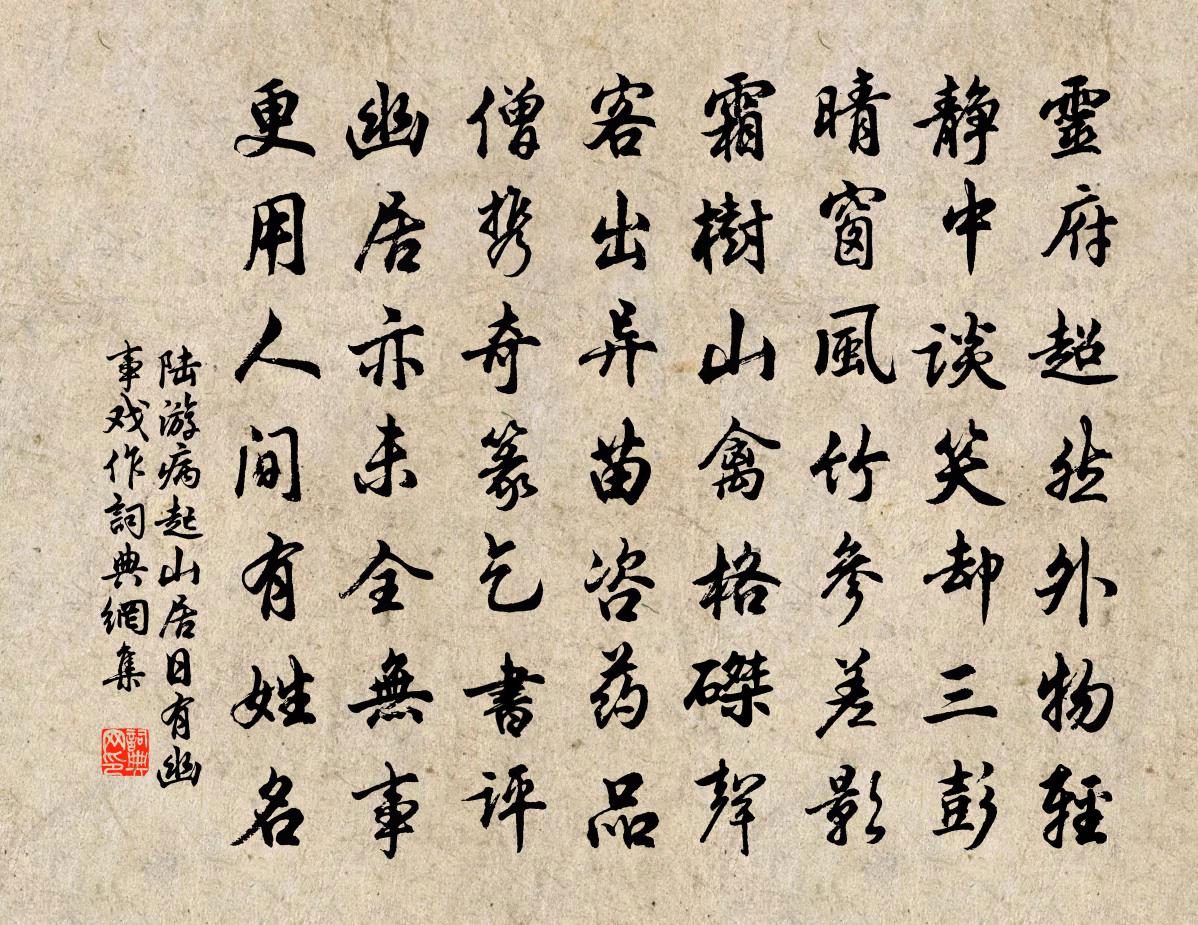 靈府超然外物輕
靜中談笑却三彭
晴窗風竹參差影
霜樹山禽格磔聲
客出异苗咨药品
僧携奇篆乞書評
幽居亦未全無事
更用人间有姓名
陆游病起山居日有幽
事戏作詞典網集
詞典网印